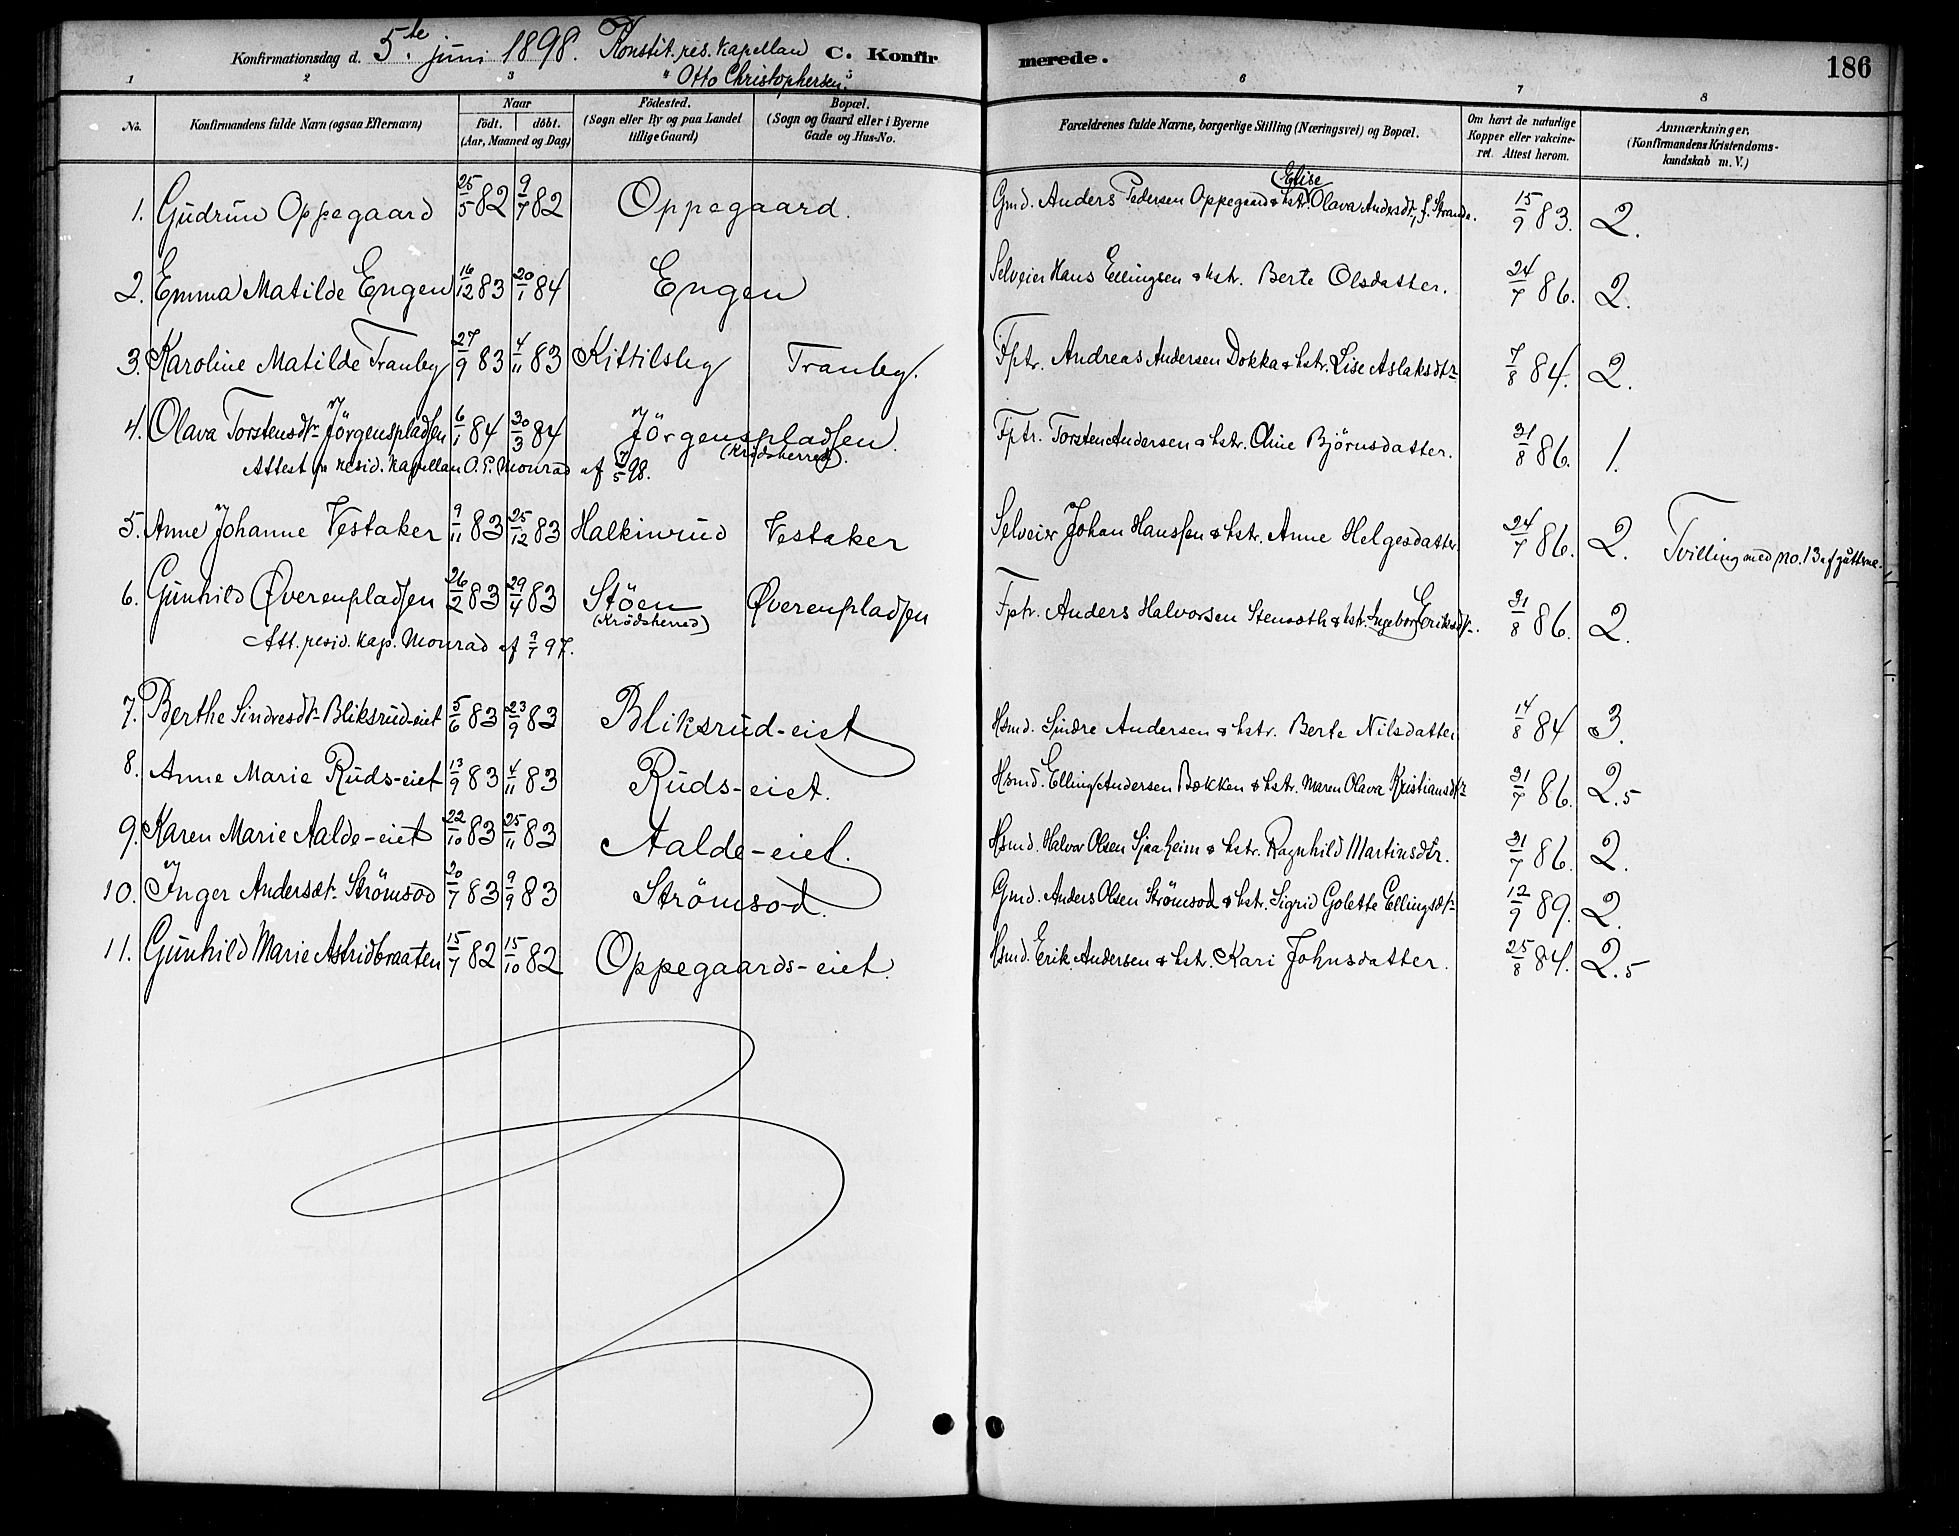 Konfirmationsdag d. 5.te juni 1898. Konstit. res. kapellan C. Konfirmerede. 186
"Otto Christophersen".
1 2 3 6 7 8
No. Konfirmandens fulde Navn (ogsaa Efternavn) Naar født. døbt. (Aar, Maaned og Dag) Fødested. (Sogn eller By og paa Landet tillige Gaard) Bopæl. (Sogn og Gaard eller i Byerne Gade og Hus-No. Forældrenes fulde Navne, borgerlige Stilling (Næringsvei) og Bopæl. Om havt de naturlige Kopper eller vakcineret. Attest herom. Anmærkninger. (Konfirmandens Kristendomskundskab m. V.)
1. Gudrun Oppegaard 25/5 82 9/7 82 Oppegaard. Gmd. Anders Pedersen Oppegaard & hstr. Elise Olava Andersdtr., f. Strande. 15/9 83. 2.
2. Emma Matilde Engen 16/12 83 20/1 84 Engen Selveier Hans Ellingsen & hstr. Berte Olsdatter. 24/7 86. 2.
3. Karoline Matilde Tranby 27/9 83 4/11 83 Kittilsby Tranby. Fptr. Andreas Andersen Dokka & hstr. Lise Aslaksdtr 7/8 84. 2.
4. Olava Torstensdtr Jörgenspladsen 6/1 84 30/3 84 Jörgenspladsen. (Krödsherred). Fptr. Torsten Andersen & hstr. Oline Björnsdatter. 31/8 86. 1.
Attest fr resid. kapellan O. P. Monrad af 7/5 98.
5. Anne Johanne Vestaker 9/11 83 25/12 83 Halkinrud Vestaker Selveier Johan Hanssen & hstr. Anne Helgesdatter 24/7 86. 2. Tvilling med no. 13 af gutterne.
6. Gunhild Øverenpladsen 26/2 83 29/4 83 Stöen (Krödsherred) Øverenpladsen Fptr. Anders Halvorsen Stensæth & hstr. Ingebor Eriksdtr. 31/8 86. 2.
Att. resid. kap. Monrad af 9/7 97.
7. Berthe Sindresdtr Bliksrud-eiet 5/6 83 23/9 83 Bliksrud-eiet Hsmd. Sindre Andersen & hstr. Berte Nilsdatter 14/8 84 3.
8. Anne Marie Ruds-eiet 13/9 83 4/11 83 Ruds-eiet. Hsmd. Elling Andersen Bakken & hstr. Maren Olava Kristiansdtr 31/7 86. 2.5
9. Karen Marie Aalde-eiet 22/10 83 25/11 83 Aalde-eiet. Hsmd. Halvor Olsen Sjaaheim & hstr. Ragnhild Martinsdtr. 31/7 86. 2.
10. Inger Andersdt. Strömsod 20/7 83 9/9 83 Strömsod. Gmd. Anders Olsen Strömsod & hstr. Sigrid Golette Ellingsdtr 12/9 89. 2.
11. Gunhild Marie Astridbraaten 15/7 82 15/10 82 Oppegaards-eiet. Hsmd. Erik Andersen & hstr. Kari Johnsdatter. 25/8 84. 2.5